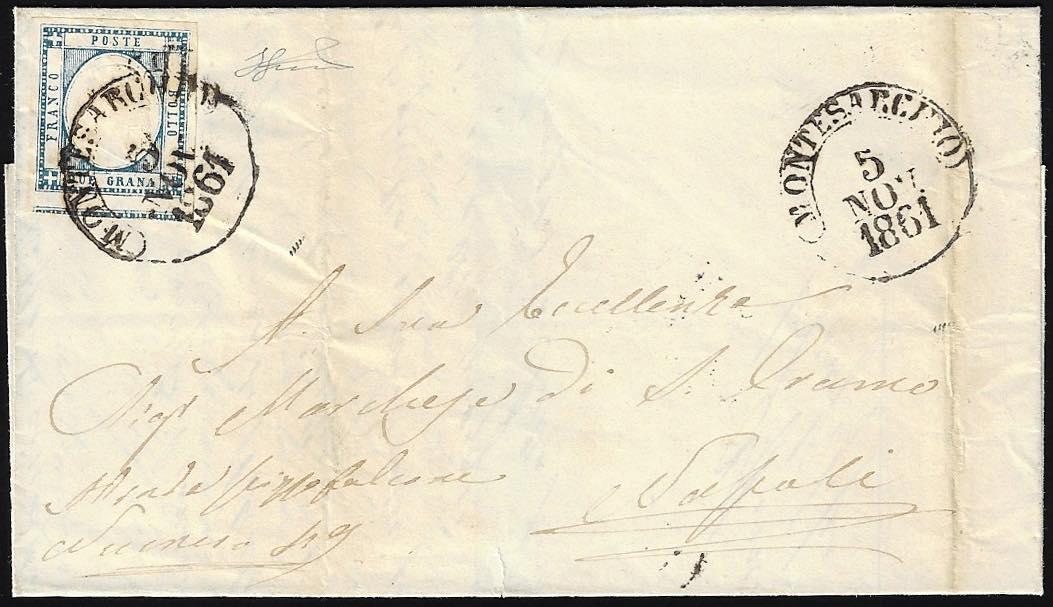 POSTE
FRANCO
BOLLO
DUE GRANA
(MONTESARCHIO)
5
NOV
1861
(MONTESARCHIO)
5
NOV.
1861
A Sua Eccellenza
Sigr Marchese di S. Eramo
Pizzofalcone
Numero 49
Napoli